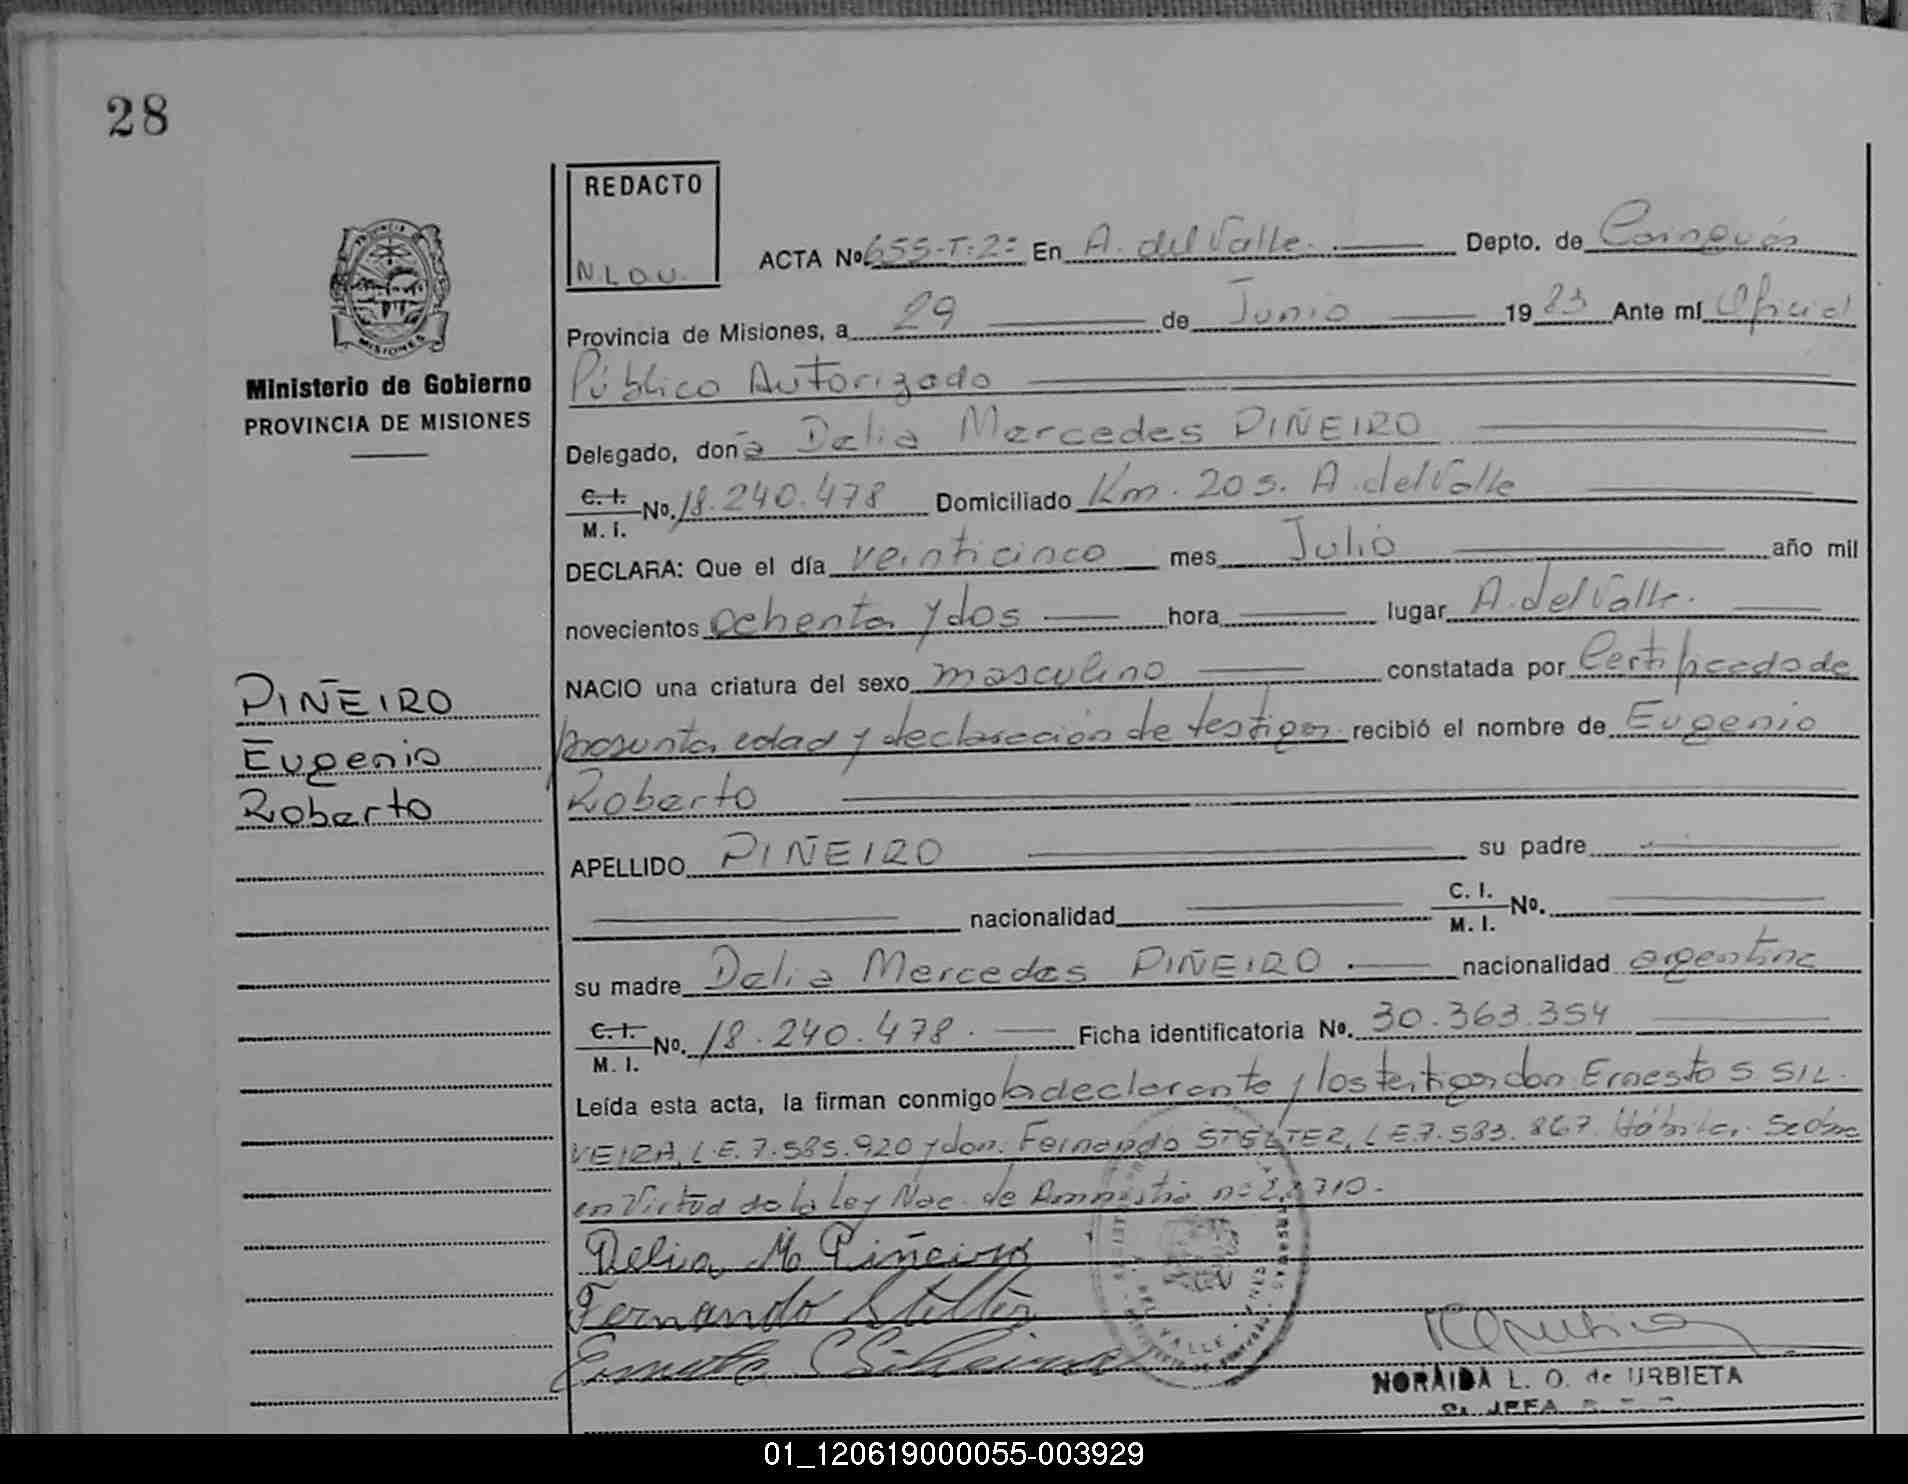 28
REDACTO
N.L.O.U.
ACTA Nº 655-T:2º En A. del Valle. Depto. de Cainguás
Provincia de Misiones, a 29 de Junio 1983 Ante mí Oficial
Público Autorizado
MISIONES
Ministerio de Gobierno
PROVINCIA DE MISIONES
Delegado, doña Delia Mercedes PIÑEIRO
C. I.
M. I. No. 18.240.478 Domiciliado Km. 205. A. del Valle
DECLARA: Que el día veinticinco mes Julio año mil
novecientos ochenta y dos hora lugar A. del Valle.
NACIO una criatura del sexo masculino constatada por Certificado de
presunta edad y declaración de testigos recibió el nombre de Eugenio
Roberto
PIÑEIRO
Eugenio
Roberto
APELLIDO PIÑEIRO su padre
nacionalidad C. I.
M. I. No.
su madre Delia Mercedes PIÑEIRO nacionalidad argentina
C. I.
M. I. No. 18.240.478. Ficha identificatoria No. 30.363.354
Leída esta acta, la firman conmigo la declarante y los testigos don Ernesto S SIL
VEIRA, L.E. 7.585.920 y don. Fernando STELTER, L.E. 7.583.867. Hábiles. Se Obra
en Virtud de la Ley Nac. de Amnistía nº 22710.
Delia M Piñeiro
Fernando Stelter
Ernesto S Silveira
VALLE
NORAIDA L. O. de URBIETA
JEFA
01_120619000055-003929